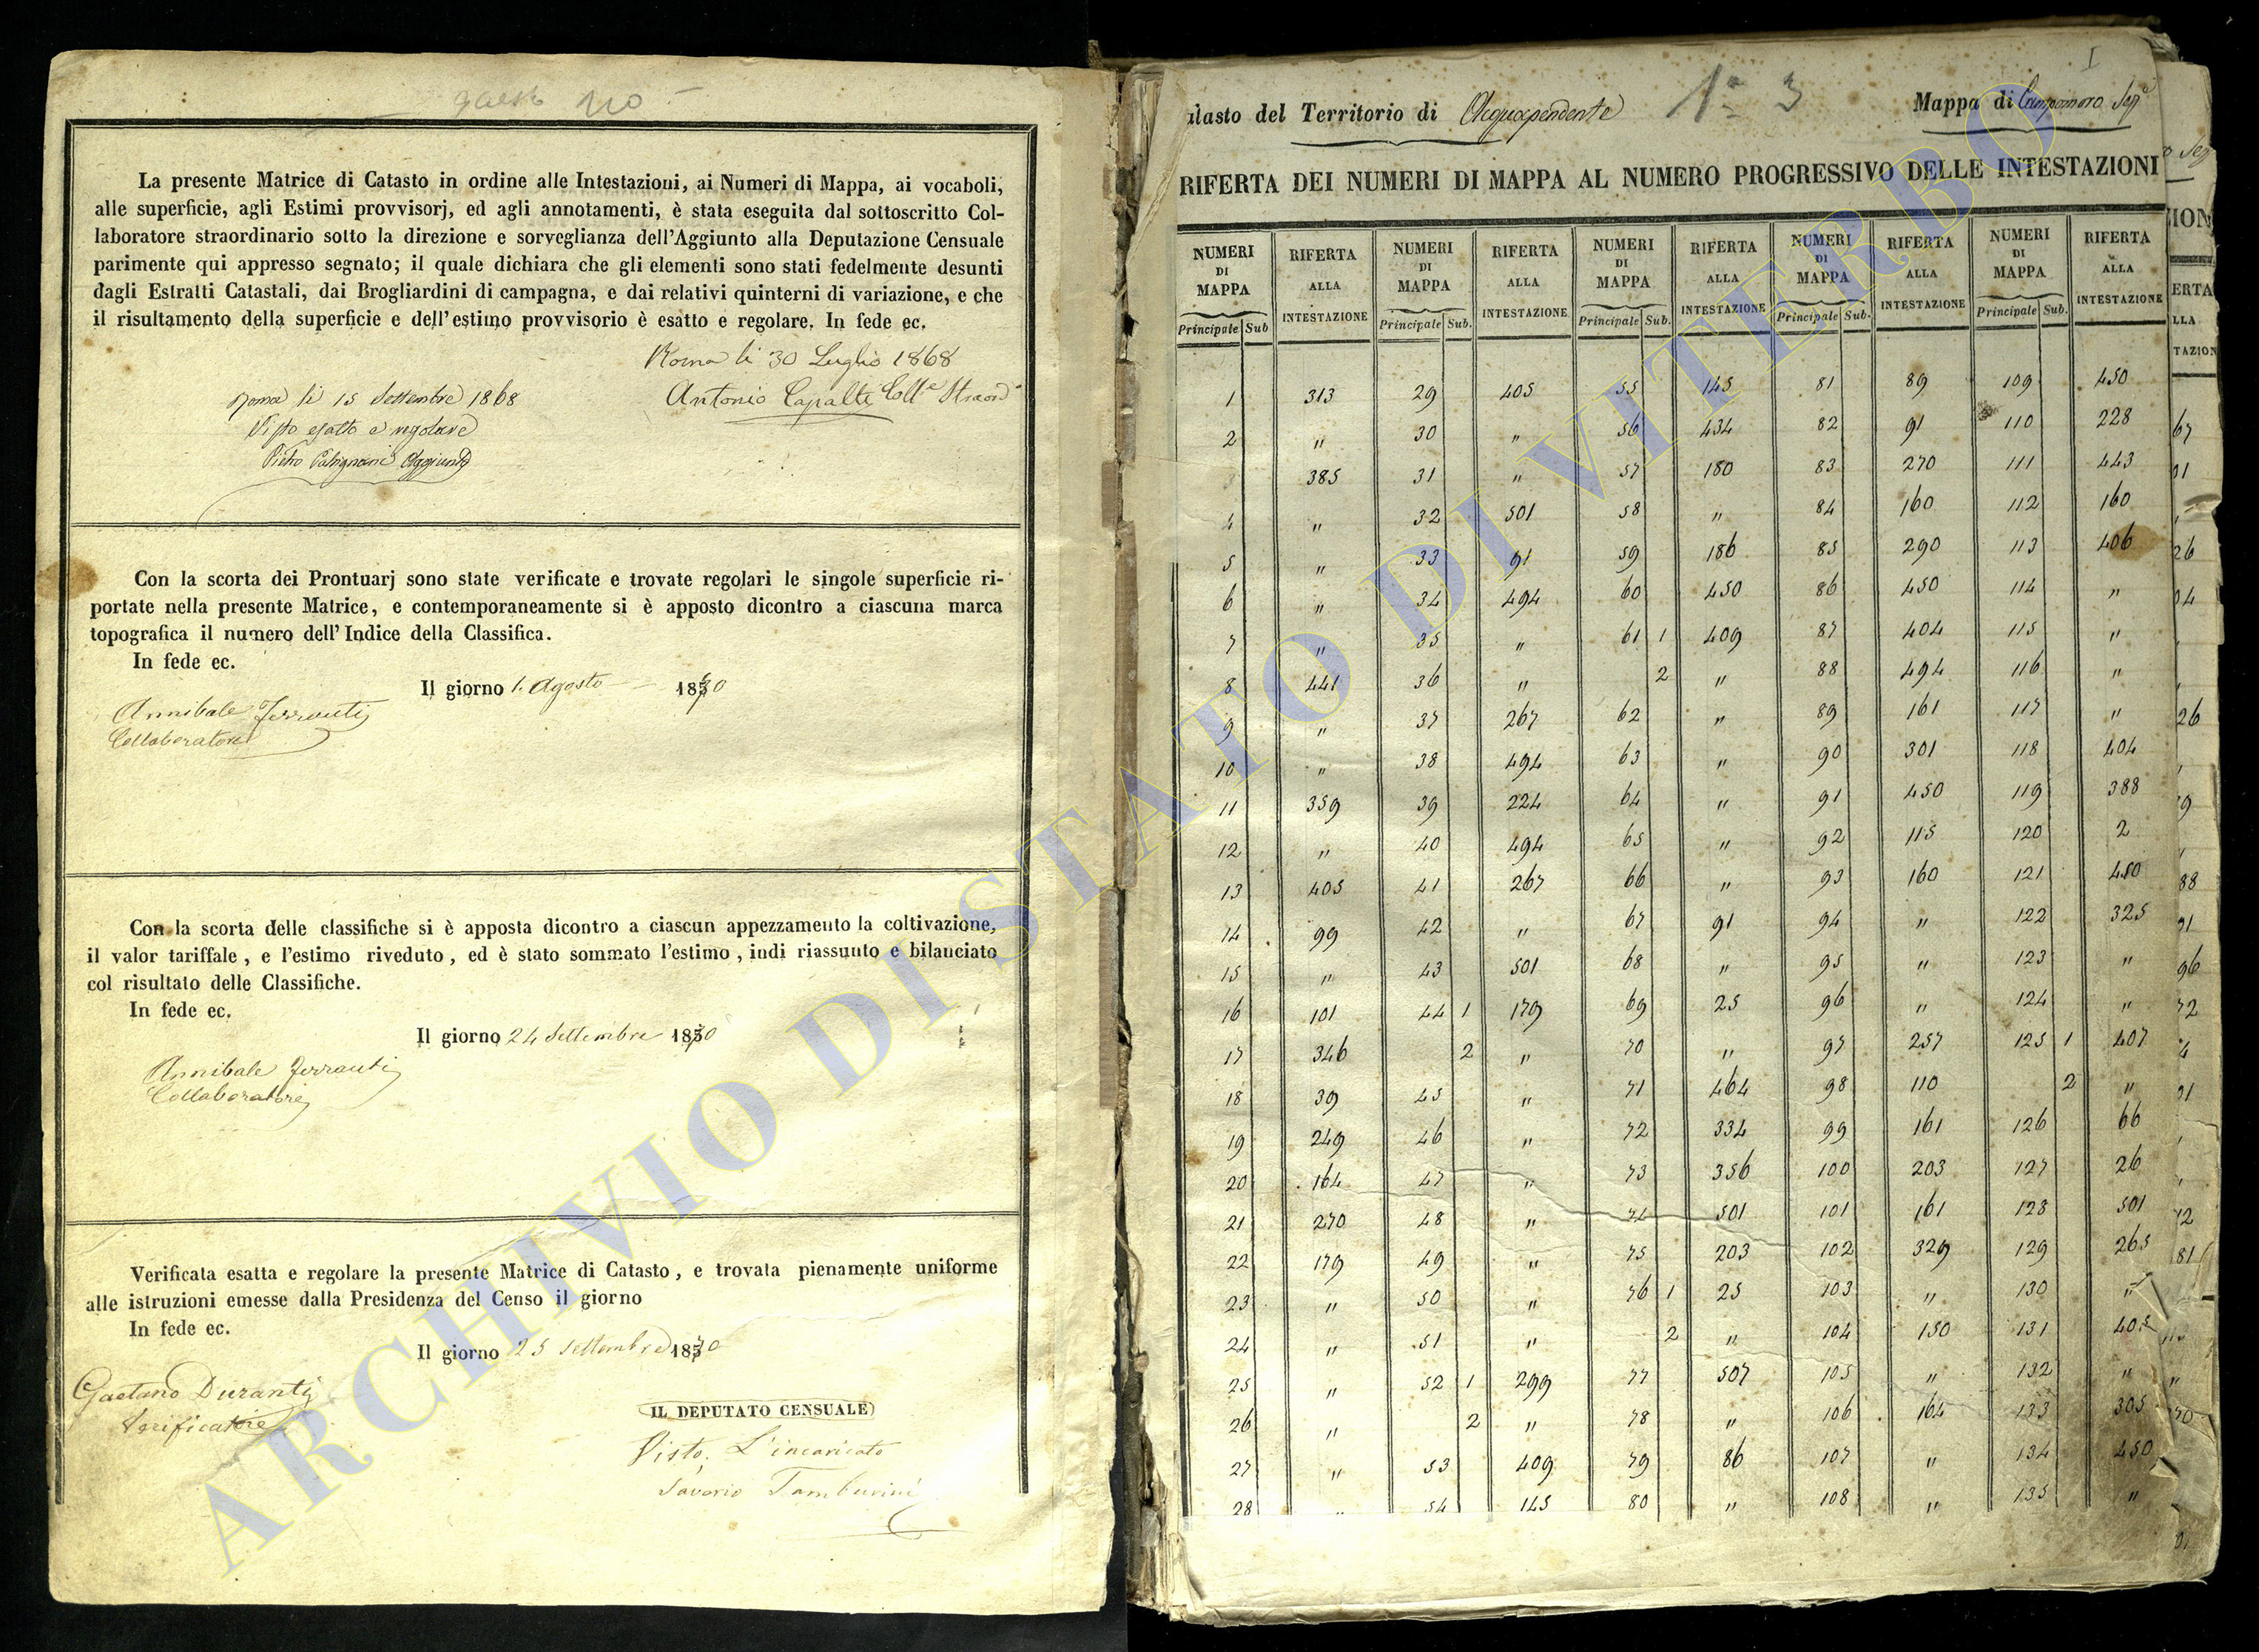 questo no
La presente Matrice di Catasto in ordine alle Intestazioni, ai Numeri di Mappa, ai vocaboli,
alle superficie, agli Estimi provvisorj, ed agli annotamenti, è stata eseguita dal sottoscritto Col-
laboratore straordinario sotto la direzione e sorveglianza dell'Aggiunto alla Deputazione Censuale
parimente qui appresso segnato; il quale dichiara che gli elementi sono stati fedelmente desunti
dagli Estratti Catastali, dai Brogliardini di campagna, e dai relativi quinterni di variazione, e che
il risultamento della superficie e dell'estimo provvisorio è esatto e regolare. In fede ec.
Roma li 30 Luglio 1868
Antonio Capalti Coll.e Straord
Roma li 15 Settembre 1868
Visto esatto e regolare
Pietro Aggiunto
Con la scorta dei Prontuarj sono state verificate e trovate regolari le singole superficie ri-
portate nella presente Matrice, e contemporaneamente si è apposto dicontro a ciascuna marca
topografica il numero dell'Indice della Classifica.
In fede ec.
Il giorno 1. Agosto 1870
Annibale Ferranti
Collaboratore
Con la scorta delle classifiche si è apposta dicontro a ciascun appezzamento la coltivazione,
il valor tariffale, e l'estimo riveduto, ed è stato sommato l'estimo, indi riassunto e bilanciato
col risultato delle Classifiche.
In fede ec.
Il giorno 24 Settembre 1870
Annibale Ferranti
Collaboratore
Verificata esatta e regolare la presente Matrice di Catasto, e trovata pienamente uniforme
alle istruzioni emesse dalla Presidenza del Censo il giorno
In fede ec.
Il giorno 25 Settembre 1870
Gaetano Duranti
Verificatore
IL DEPUTATO CENSUALE
Visto, L'incaricato
Saverio Tamburini
I
atasto del Territorio di Acquapendente 1° 3 Mappa di Campomoro Seg.e
RIFERTA DEI NUMERI DI MAPPA AL NUMERO PROGRESSIVO DELLE INTESTAZIONI
NUMERI DI MAPPA RIFERTA ALLA INTESTAZIONE NUMERI DI MAPPA RIFERTA ALLA INTESTAZIONE NUMERI DI MAPPA RIFERTA ALLA INTESTAZIONE NUMERI DI MAPPA RIFERTA ALLA INTESTAZIONE NUMERI DI MAPPA RIFERTA ALLA INTESTAZIONE
Principale Sub Principale Sub. Principale Sub. Principale Sub. Principale Sub.
1 313 29 405 55 145 81 89 109 450
2 " 30 " 56 434 82 91 110 228
385 31 " 57 180 83 270 111 443
4 " 32 501 58 " 84 160 112 160
5 " 33 91 59 186 85 290 113 406
6 " 34 494 60 450 86 450 114 "
7 " 35 " 61 1 409 87 404 115 "
8 441 36 " 2 " 88 494 116 "
9 " 37 267 62 " 89 161 117 "
10 " 38 494 63 " 90 301 118 404
11 359 39 224 64 " 91 450 119 388
12 " 40 494 65 " 92 115 120 2
13 405 41 267 66 " 93 160 121 450
14 99 42 " 67 91 94 " 122 325
15 " 43 501 68 " 95 " 123 "
16 101 44 1 179 69 25 96 " 124 "
17 346 2 " 70 " 97 257 125 1 407
18 39 45 " 71 464 98 110 2 "
19 249 46 " 72 334 99 161 126 66
20 164 47 " 73 356 100 203 127 26
21 270 48 " 74 501 101 161 128 501
22 179 49 " 75 203 102 329 129 265
23 " 50 " 76 1 25 103 " 130 "
24 " 51 " 2 " 104 150 131 405
25 " 52 1 299 77 507 105 " 132 "
26 " 2 " 78 " 106 164 133 305
27 " 53 409 79 86 107 " 134 450
28 " 54 145 80 " 108 " 135 "
ARCHIVIO DI STATO DI VITERBO